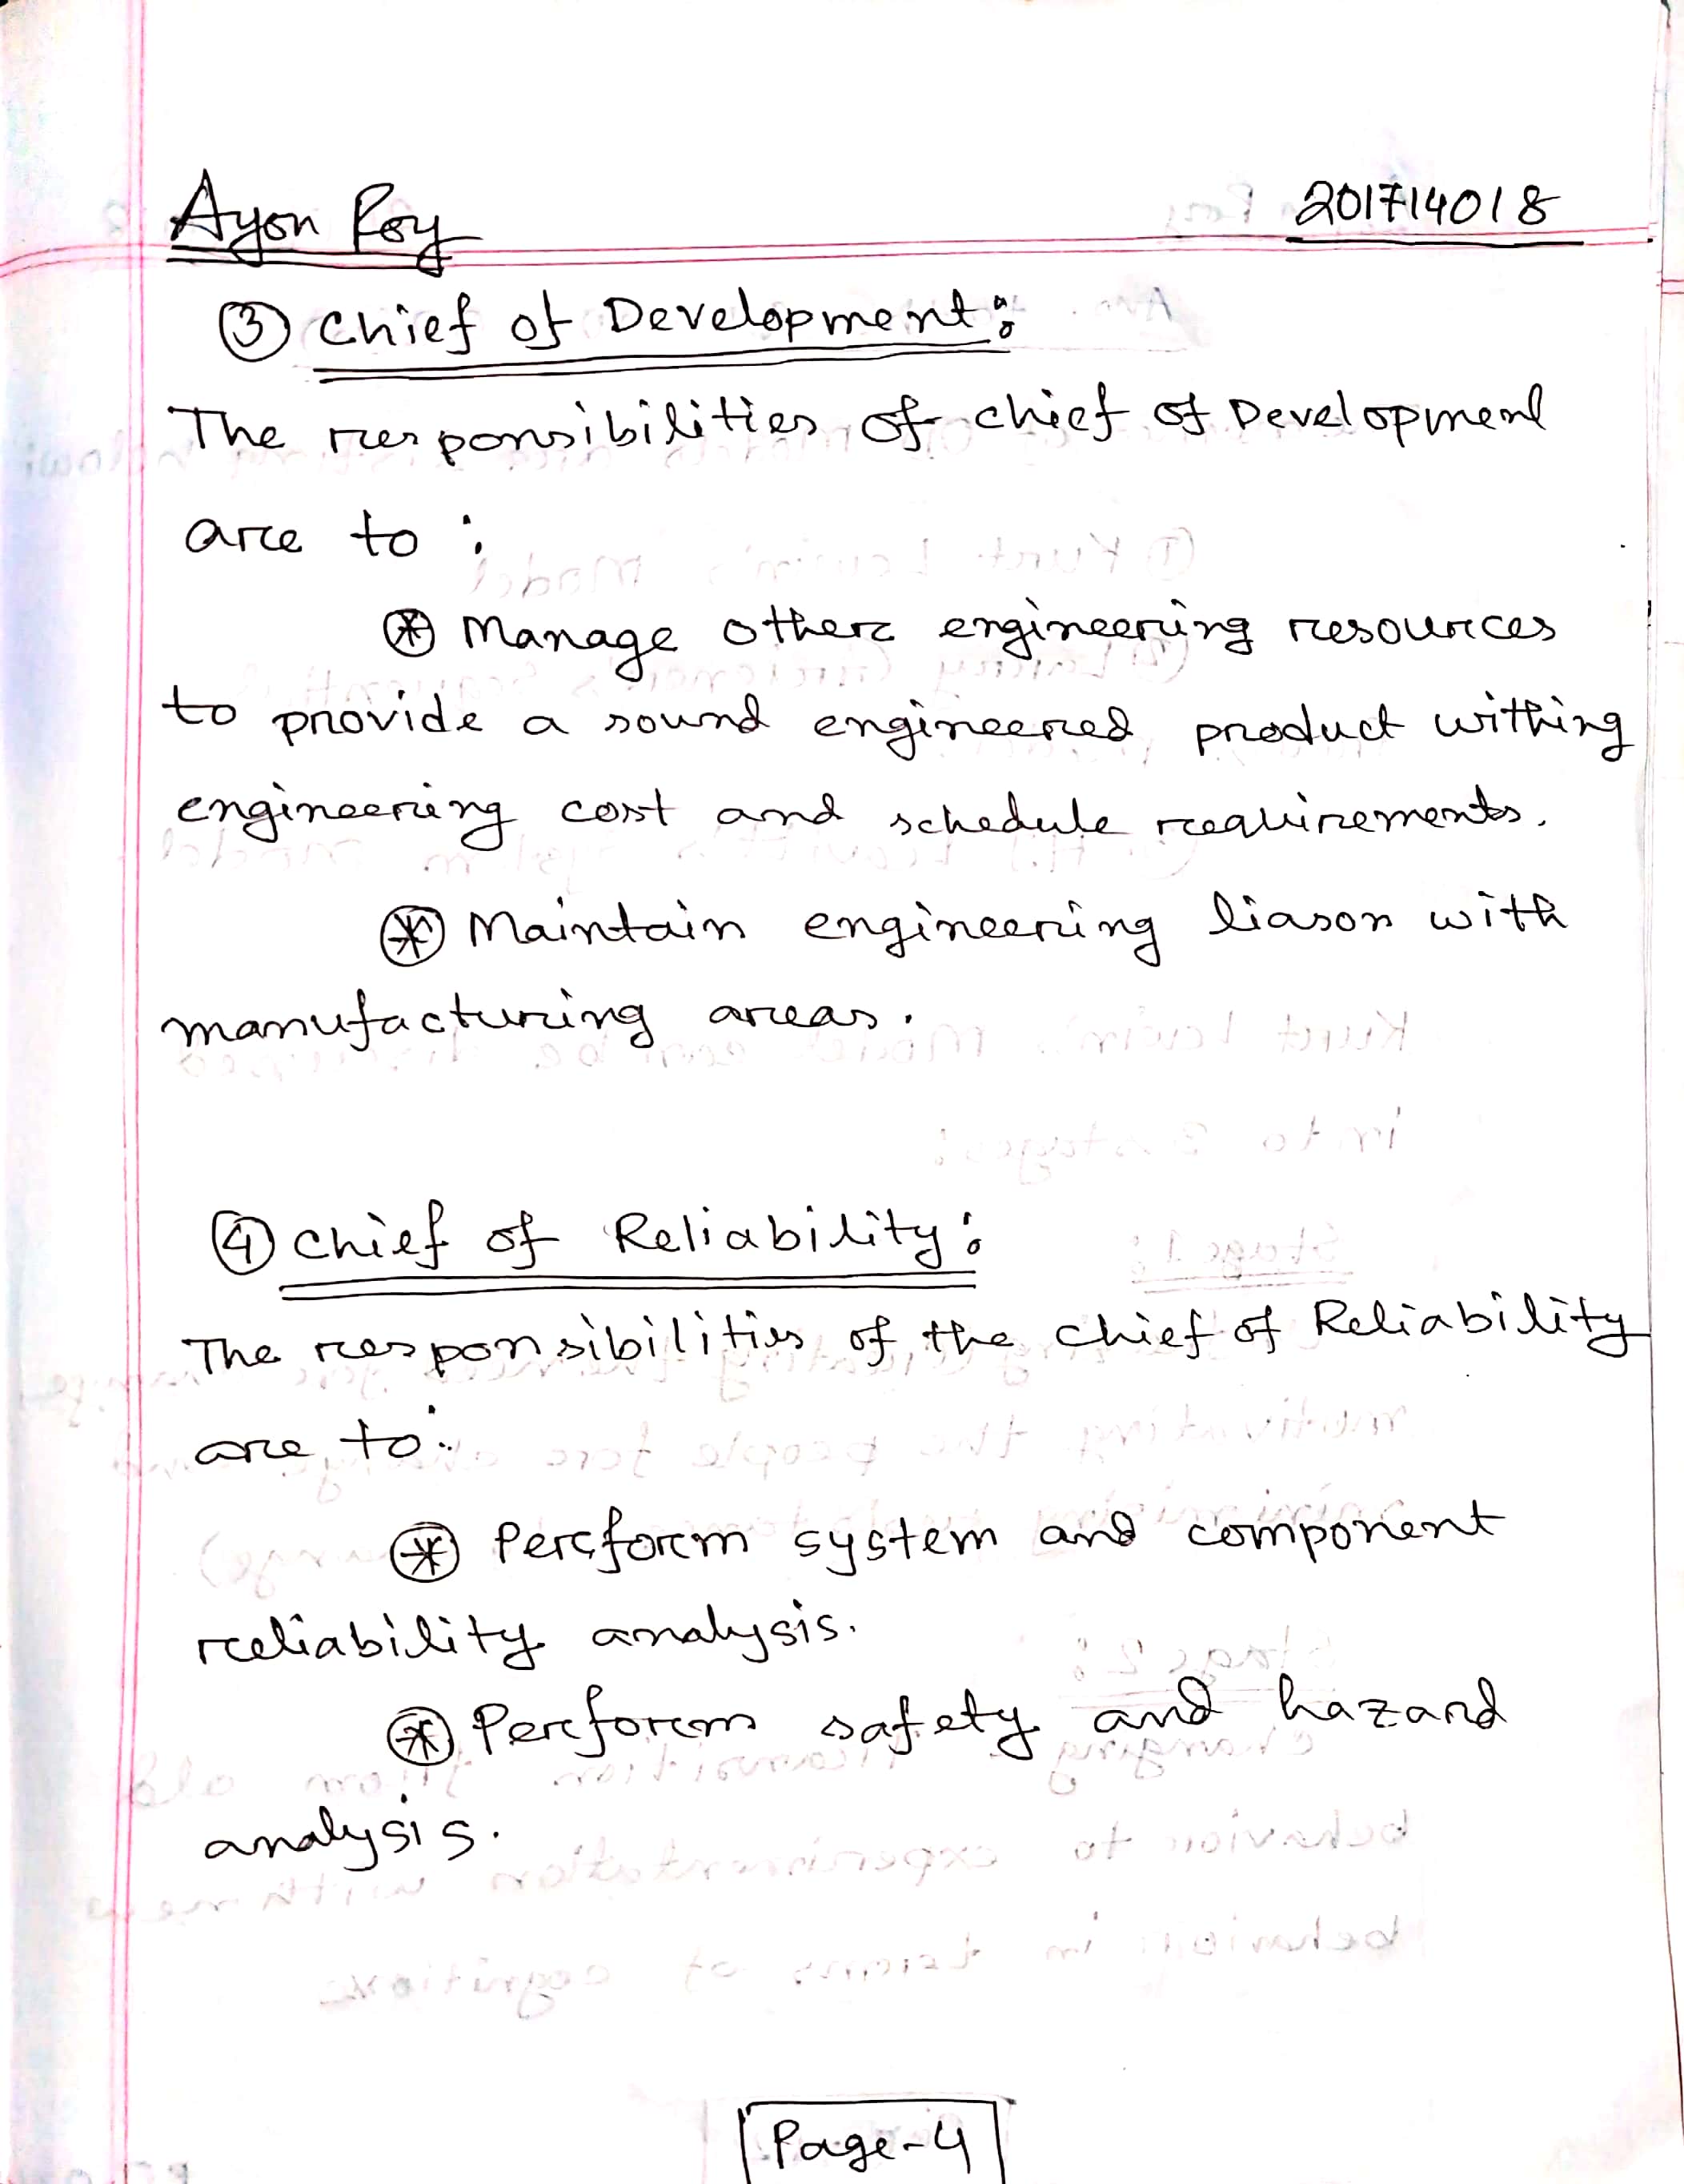 Ayon Roy 201714018
③ Chief of Development:
The responsibilities of chief of Development
are to:
⊛ Manage other engineering resources
to provide a sound engineered product withing
engineering cost and schedule requirements.
⊛ Maintain engineering liason with
manufacturing areas.
④ Chief of Reliability:
The responsibilities of the Chief of Reliability
are to:
⊛ Perform system and component
reliability analysis.
⊛ Perform safety and hazard
analysis.
Page-4